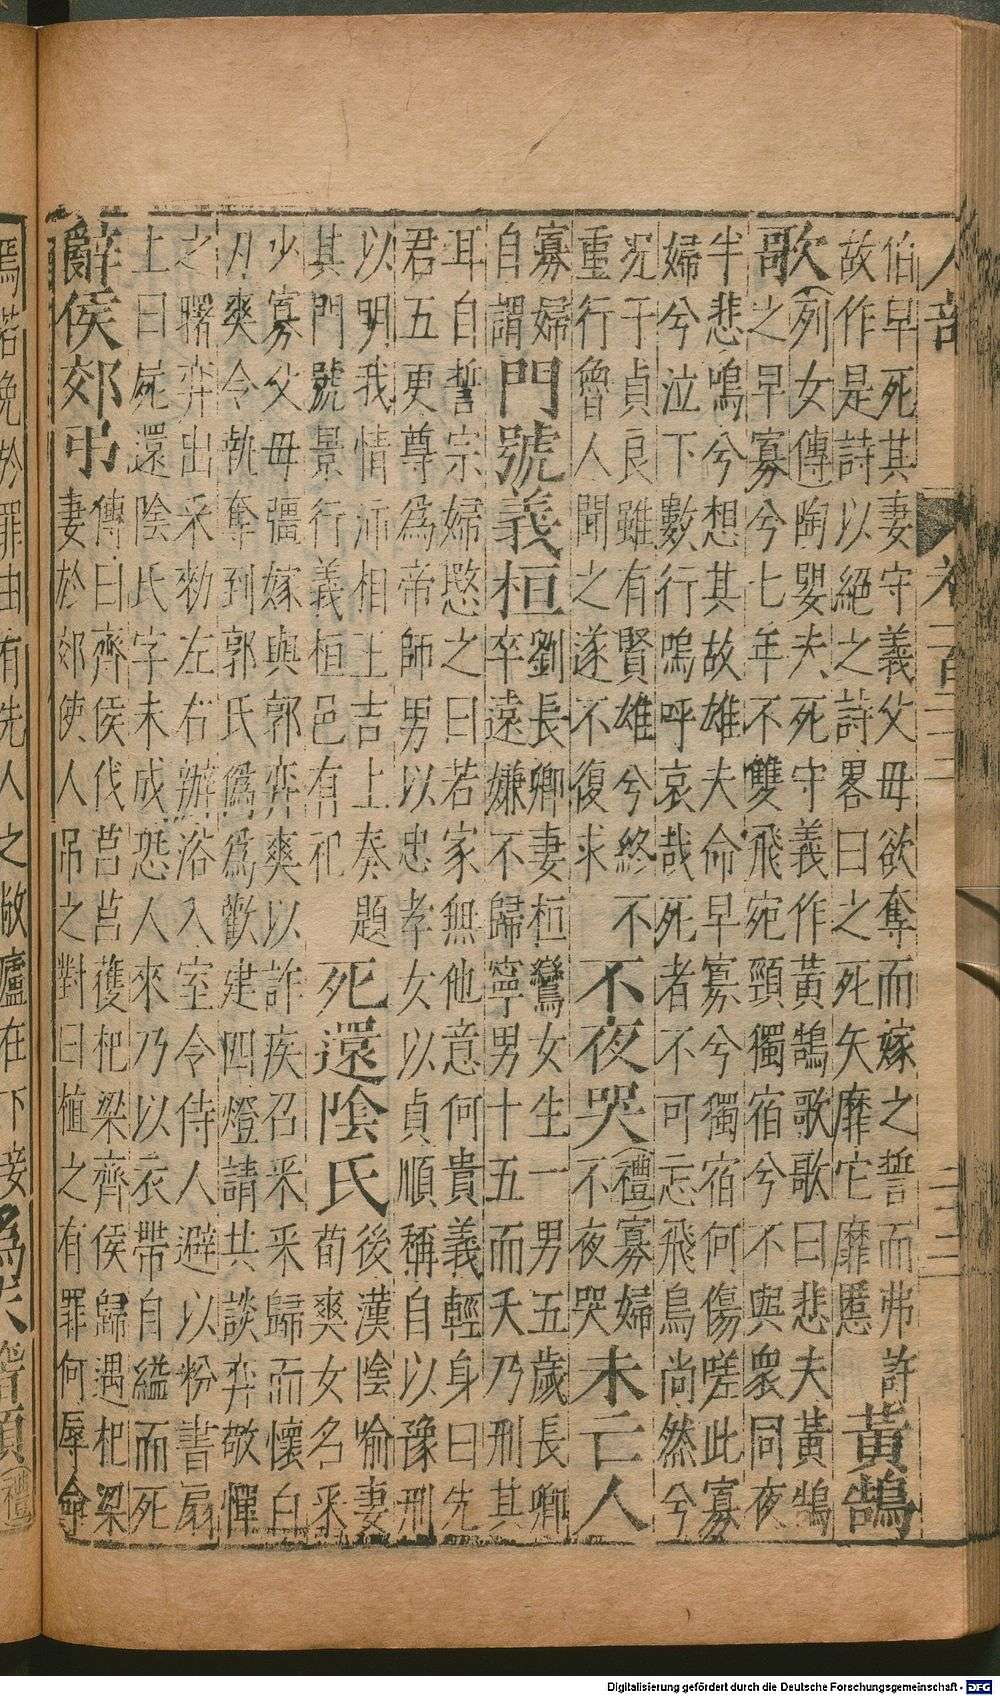 人部
伯早死其妻守義父母欲奪而嫁之誓而弗許
故作是詩以絕之詩畧曰之死矢靡它靡慝
黃鵠
歌
列女傳陶嬰夫死守義作黃鵠歌歌曰悲夫黃鵠
之早寡兮七年不雙飛宛頸獨宿兮不與衆同夜
半悲鳴兮想其故雄夫命早寡兮獨宿何傷嗟此寡
婦兮泣下數行嗚呼哀哉死者不可忘飛鳥尚然兮
況于貞良雖有賢雄兮終不
重行魯人聞之遂不復求
不夜哭
禮寡婦
不夜哭
未亡人
寡婦
自謂
門號義桓
劉長卿妻桓鸞女生一男五歲長卿
卒遠嫌不歸寧男十五而夭乃刑其
耳自誓宗婦愍之曰若家無他意何貴義輕身曰先
君五更尊為帝師男以忠孝女以貞順稱自以豫刑
以明我情沛相王吉上奏題
其門號景行義桓邑有祀
死還陰氏
後漢陰喻妻
荀爽女名采
少寡父母彊嫁與郭弈爽以許疾召采采歸而懷白
刃爽令執奪到郭氏偽為歡建四燈請共談弈敬憚
之曙弈出采勑左右辦浴入室令侍人避以粉書扇
上曰屍還陰氏字未成恐人來乃以衣帶自縊而死
辭侯郊弔
傳曰齊侯伐莒莒獲杞梁齊侯歸遇杞梁
妻於郊使人吊之對曰植之有罪何辱命
焉若免於罪由有先人之敝廬在下妾
禮
Digitalisierung gefördert durch die Deutsche Forschungsgemeinschaft - DFG